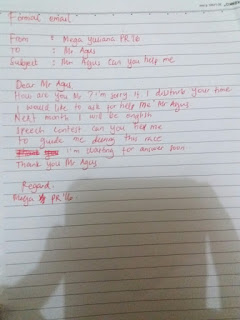 Formal email
From : Mega Yuliana PR 16
To : Mr Agus
Subject : Mr. Agus can you help me
Dear Mr Agus,
How are you Mr ? I'm sorry if I disturb your time
I would like to ask for help me Mr Agus
Next month I will be english
speech contest can you help me
to guide me during this race
I'm waiting for answer soon
Thank you Mr Agus
Regard.
Mega PR 16